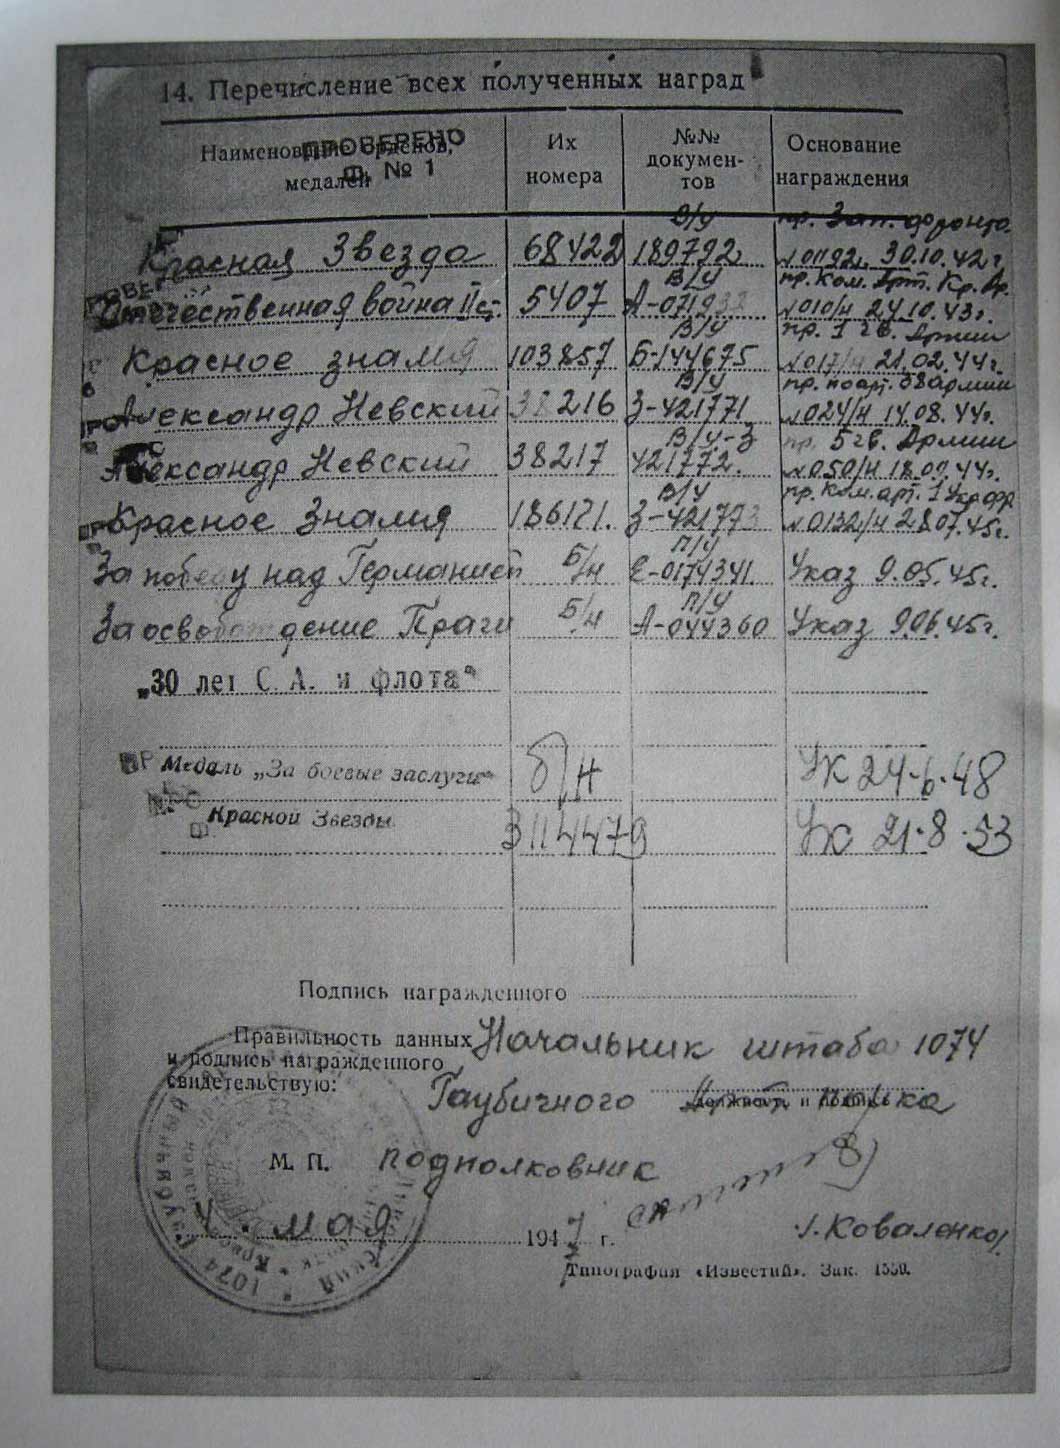 14. Перечисление всех полученных наград
Наименование орденов, медалей
ПРОВЕРЕНО
Ф. № 1
Их номера
№№ докумен-тов
Основание награждения
Красная Звезда 68422 О/у 189792 пр. Зап. фронта №01192 30.10.42г.
Отечественная война II ст. 5407 В/у А-071 пр. Ком. Арт. Кр. Ар. №010/н 24.10.43г.
Красное знамя 103857 В/у Б-144675 пр. 1 гв. Армии №017/н 21.02.44г.
Александр Невский 38216 В/у З-421771 пр. по арт. 38 армии №024/н 14.08.44г.
Александр Невский 38217 В/у-З 421772. пр. 5 гв. Армии №050/н 18.09.44г.
Красное Знамя 186121. В/у З-421773 пр. Ком. арт. 1 Укр фр №0132/н 28.07.45г.
За победу над Германией б/н П/у Е-0174341. Указ 9.05.45г.
За освобождение Праги б/н П/у А-044360 Указ 9.06.45г.
„30 лет С. А. и флота"
Медаль „За боевые заслуги" б/н Ук 24.6.48
Красной Звезды 3114479 Ук 21.8.53
Подпись награжденного
Правильность данных и подпись награжденного свидетельствую:
Начальник штаба 1074
Гаубичного Арт. полка
должность и подпись
М. П. подполковник
мая 1947 г.
Коваленко
1074
Типография «Известий». Зак. 1550.